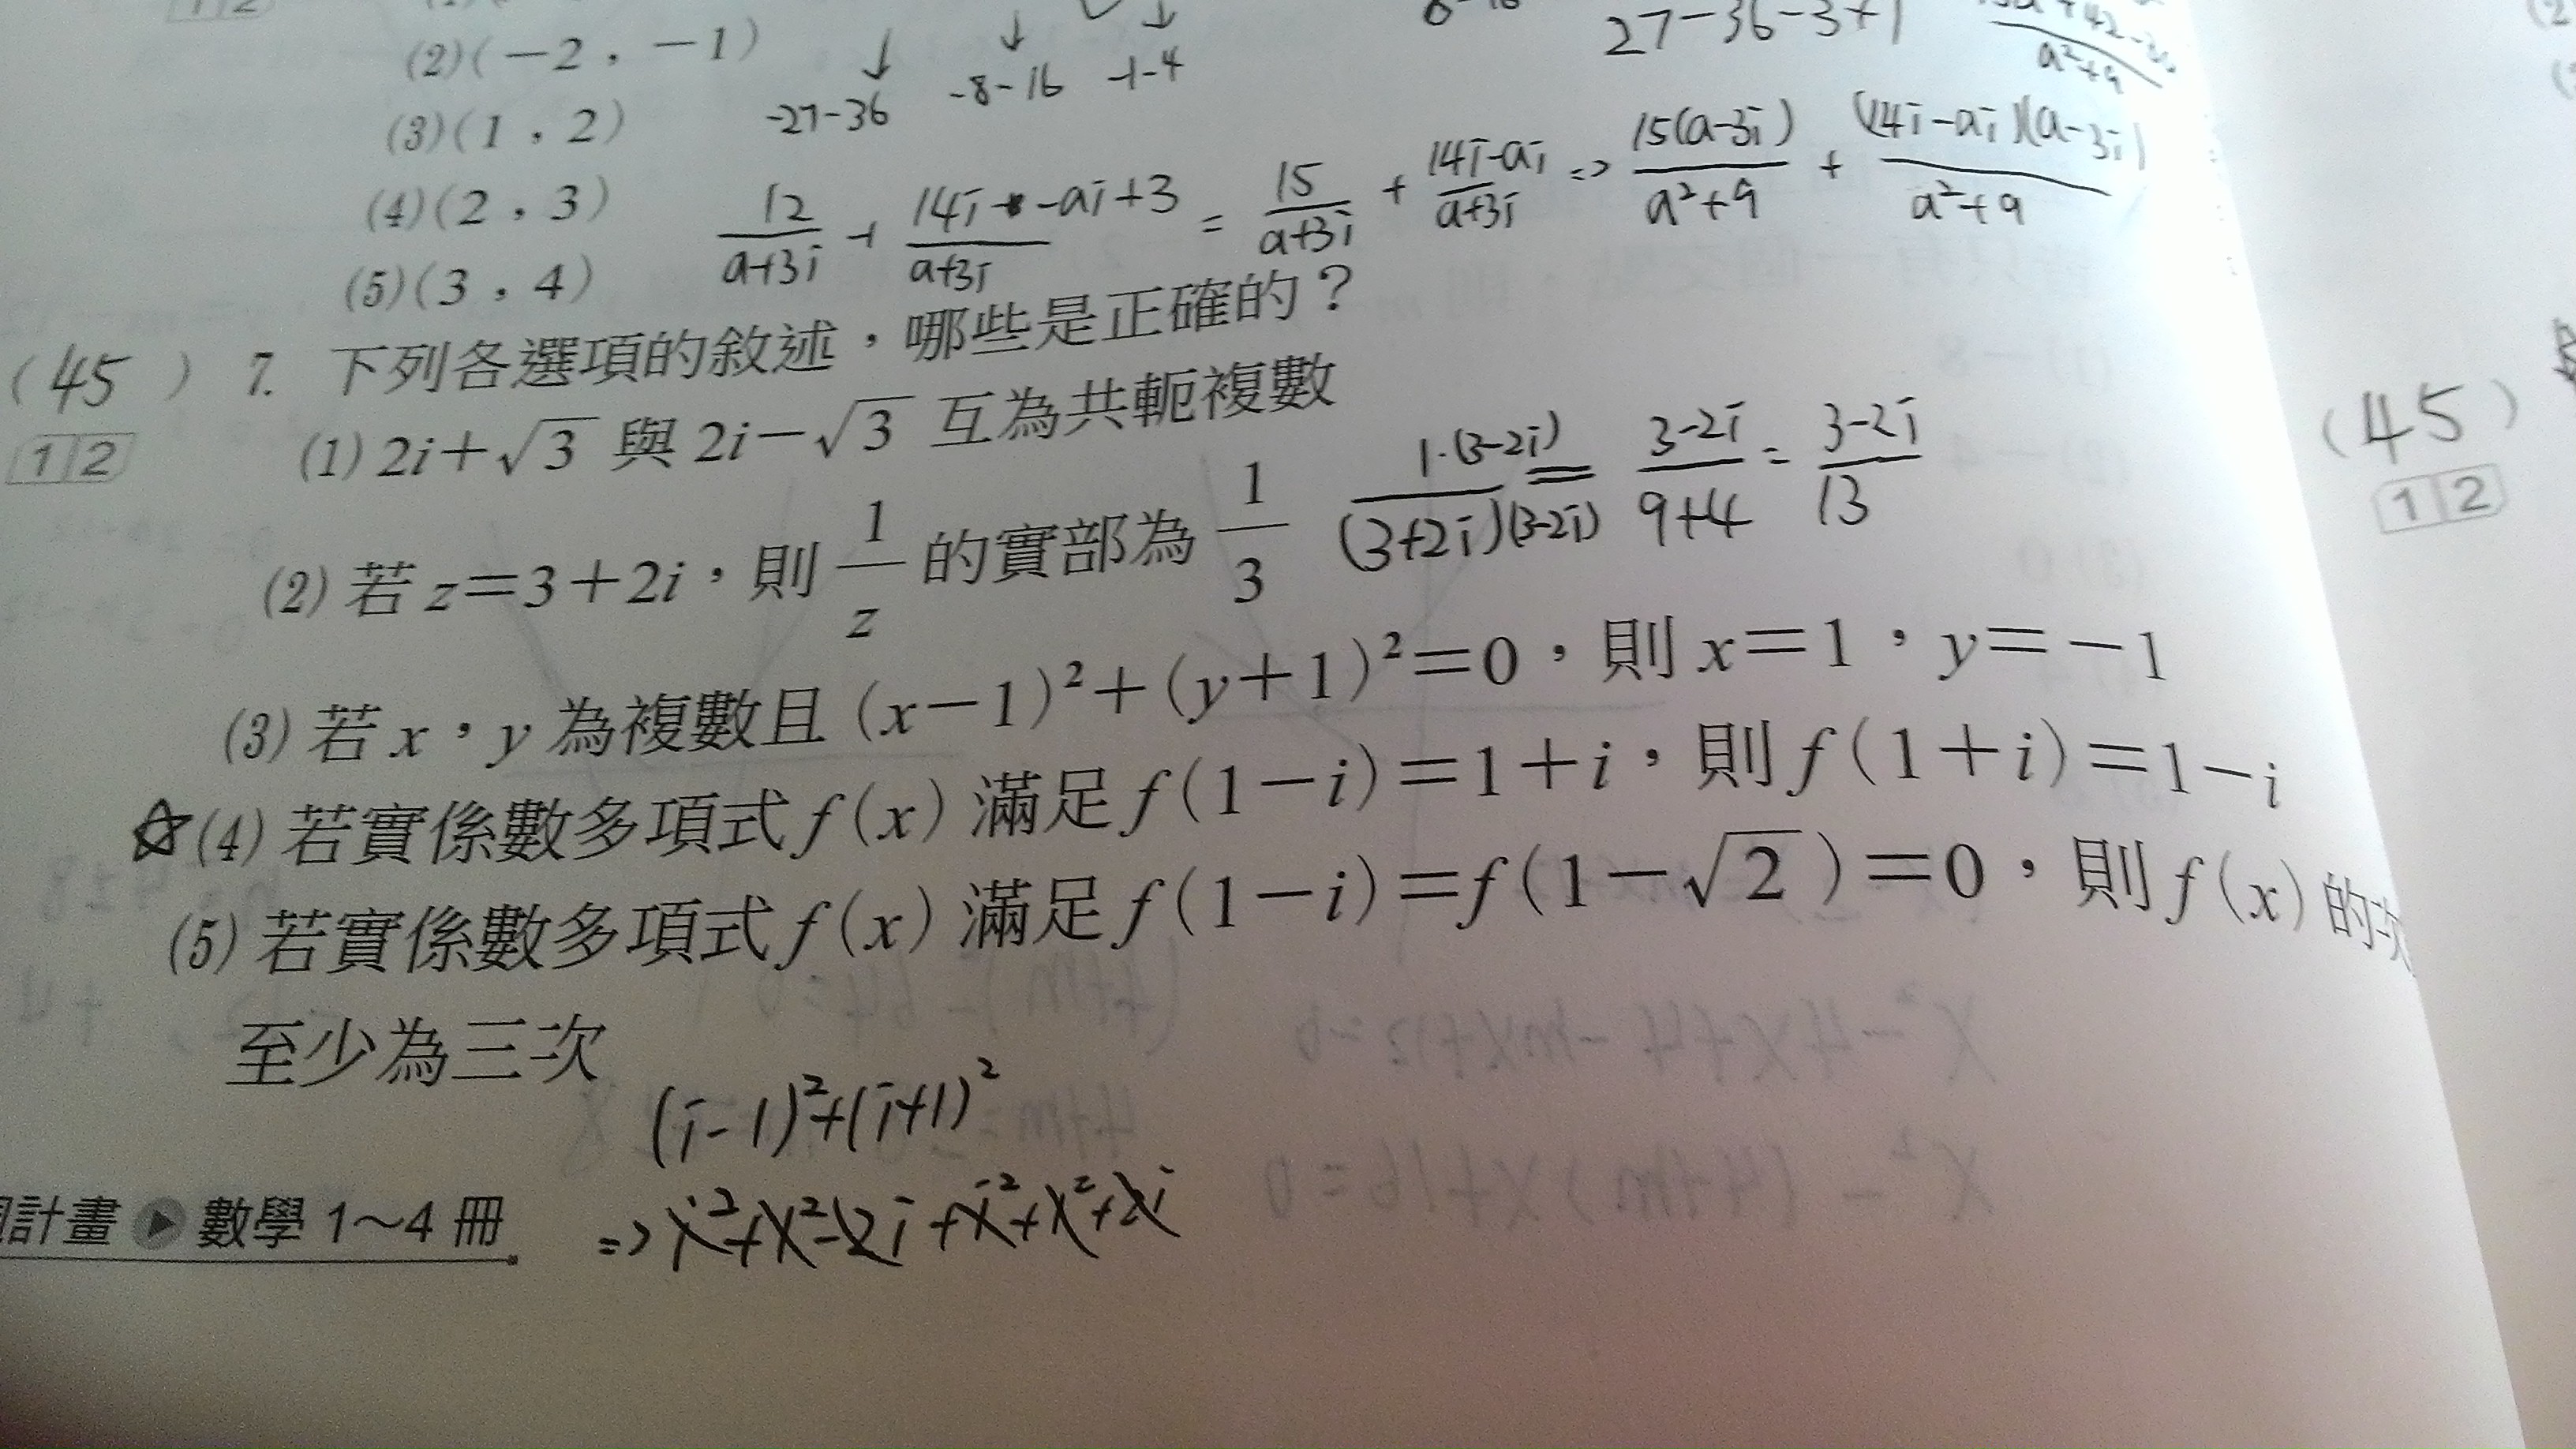 (2)(－2，－1)
(3)(1，2)
(4)(2，3)
(5)(3，4)
-27-36
-8-16
-1-4
27-36-3+1
12/(a+3i) + (14i - ai+3)/(a+3i) = 15/(a+3i) + (14i-ai)/(a+3i) => 15(a-3i)/(a²+9) + (14i-ai)(a-3i)/(a²+9)
(45) 7. 下列各選項的敘述，哪些是正確的？
1 2
(1) 2i＋√3 與 2i－√3 互為共軛複數
(2) 若 z＝3＋2i，則 1/z 的實部為 1/3
1·(3-2i)/(3+2i)(3-2i) = (3-2i)/(9+4) = (3-2i)/13
(3) 若 x，y 為複數且 (x－1)²＋(y＋1)²＝0，則 x＝1，y＝－1
☆(4) 若實係數多項式 f(x) 滿足 f(1－i)＝1＋i，則 f(1＋i)＝1－i
(5) 若實係數多項式 f(x) 滿足 f(1－i)＝f(1－√2)＝0，則 f(x) 的次
至少為三次
(i-1)²+(i+1)²
計畫 ▶ 數學 1～4 冊
(45)
1 2